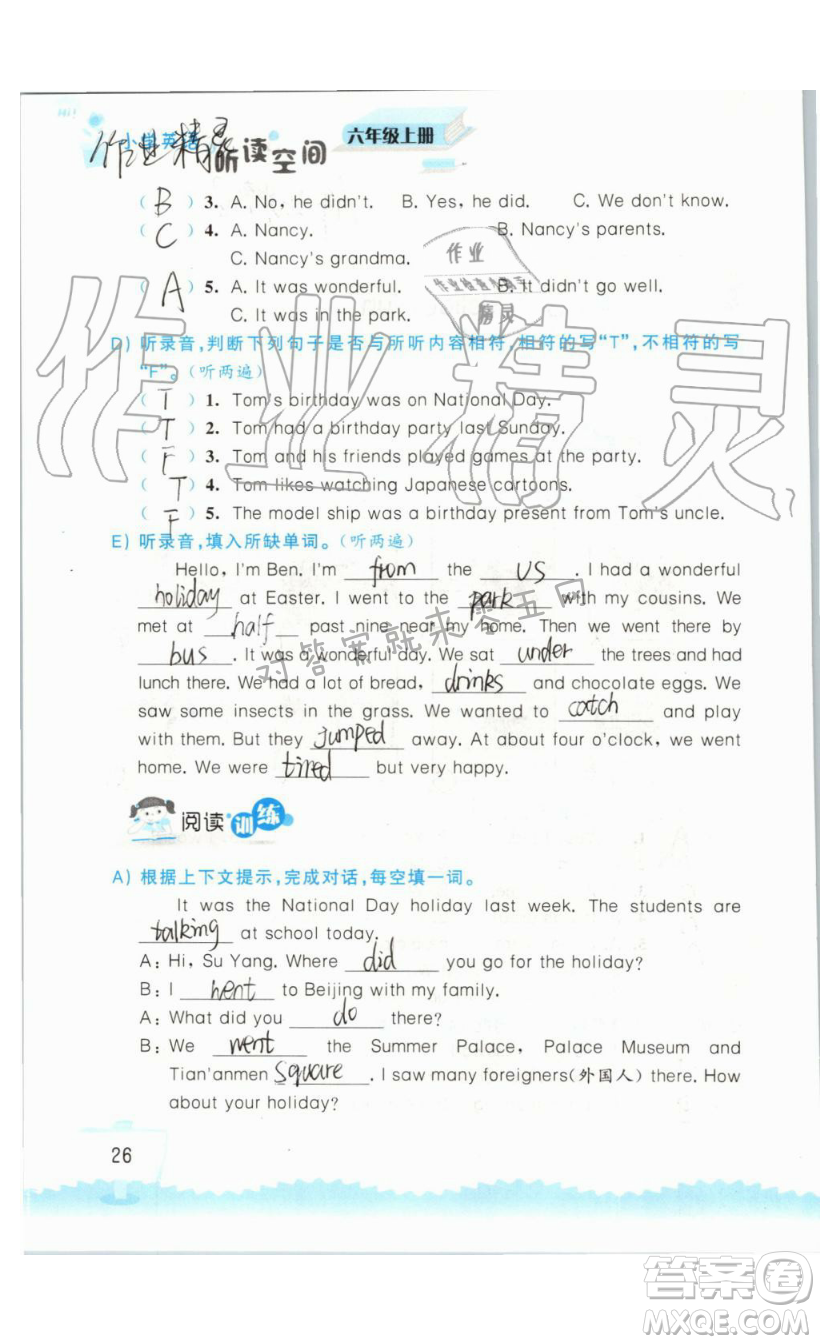 Hi!
小学英语
作业精灵
听读空间
六年级上册
( B ) 3. A. No, he didn't. B. Yes, he did. C. We don't know.
( C ) 4. A. Nancy. B. Nancy's parents.
C. Nancy's grandma.
( A ) 5. A. It was wonderful. B. It didn't go well.
C. It was in the park.
作业
精灵
D) 听录音,判断下列句子是否与所听内容相符,相符的写“T”,不相符的写
“F”。(听两遍)
( T ) 1. Tom's birthday was on National Day.
( T ) 2. Tom had a birthday party last Sunday.
( F ) 3. Tom and his friends played games at the party.
( T ) 4. Tom likes watching Japanese cartoons.
( F ) 5. The model ship was a birthday present from Tom's uncle.
作业精灵
E) 听录音,填入所缺单词。(听两遍)
Hello, I'm Ben. I'm from the US . I had a wonderful
holiday at Easter. I went to the park with my cousins. We
met at half past nine near my home. Then we went there by
bus . It was a wonderful day. We sat under the trees and had
lunch there. We had a lot of bread, drinks and chocolate eggs. We
saw some insects in the grass. We wanted to catch and play
with them. But they jumped away. At about four o'clock, we went
home. We were tired but very happy.
对答案就来零五网
阅读训练
A) 根据上下文提示,完成对话,每空填一词。
It was the National Day holiday last week. The students are
talking at school today.
A: Hi, Su Yang. Where did you go for the holiday?
B: I went to Beijing with my family.
A: What did you do there?
B: We went the Summer Palace, Palace Museum and
Tian'anmen Square . I saw many foreigners(外国人) there. How
about your holiday?
26
答案卷
MXQE.COM